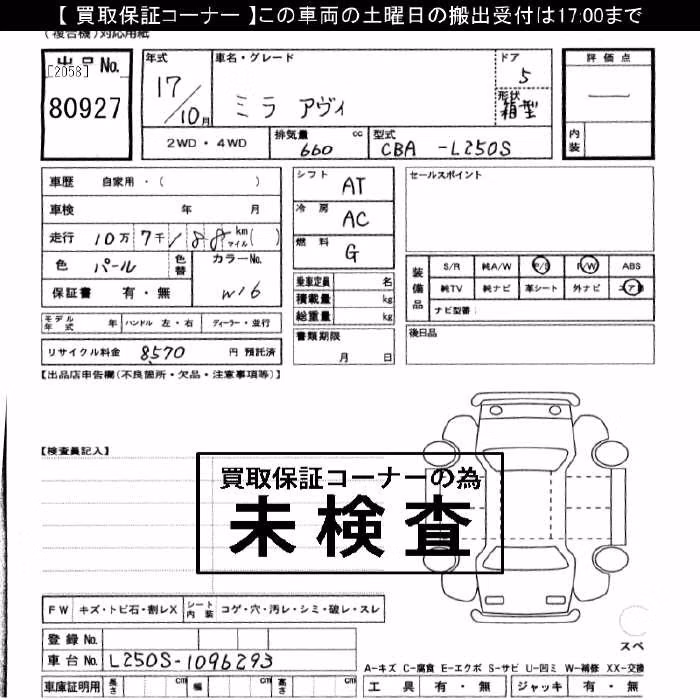 【 買取保証コーナー 】この車両の土曜日の搬出受付は17:00まで
(複合機)対応用紙
出品No.
[2058]
80927
年式
17/10月
車名・グレード
ミラ アヴィ
ドア
5
形状
箱型
評価点
—
内装
2WD・4WD
排気量 cc
660
型式
CBA -L250S
車歴 自家用・( )
車検 年 月
走行 10万 7千 188 km マイル( )
色 パール
色替
カラーNo.
W16
保証書 有・無
シフト AT
冷房 AC
燃料 G
乗車定員 名
積載量 kg
総重量 kg
書類期限
月 日
セールスポイント
装備品
S/R 純A/W P/S P/W ABS
純TV 純ナビ 革シート 外ナビ
ナビ型番:
後日品
モデル年式 年 ハンドル 左・右 ディーラー・並行
リサイクル料金 8,570 円 預託済
【出品店申告欄(不良箇所・欠品・注意事項等)】
【検査員記入】
買取保証コーナーの為
未検査
FW キズ・トビ石・割レX シート内装 コゲ・穴・汚レ・シミ・破レ・スレ
登録No.
車台No. L250S-1096293
車庫証明用 長さ cm 幅 cm 高さ cm
スペ
A-キズ C-腐食 E-エクボ S-サビ U-凹ミ W-補修 XX-交換
工具 有・無 ジャッキ 有・無